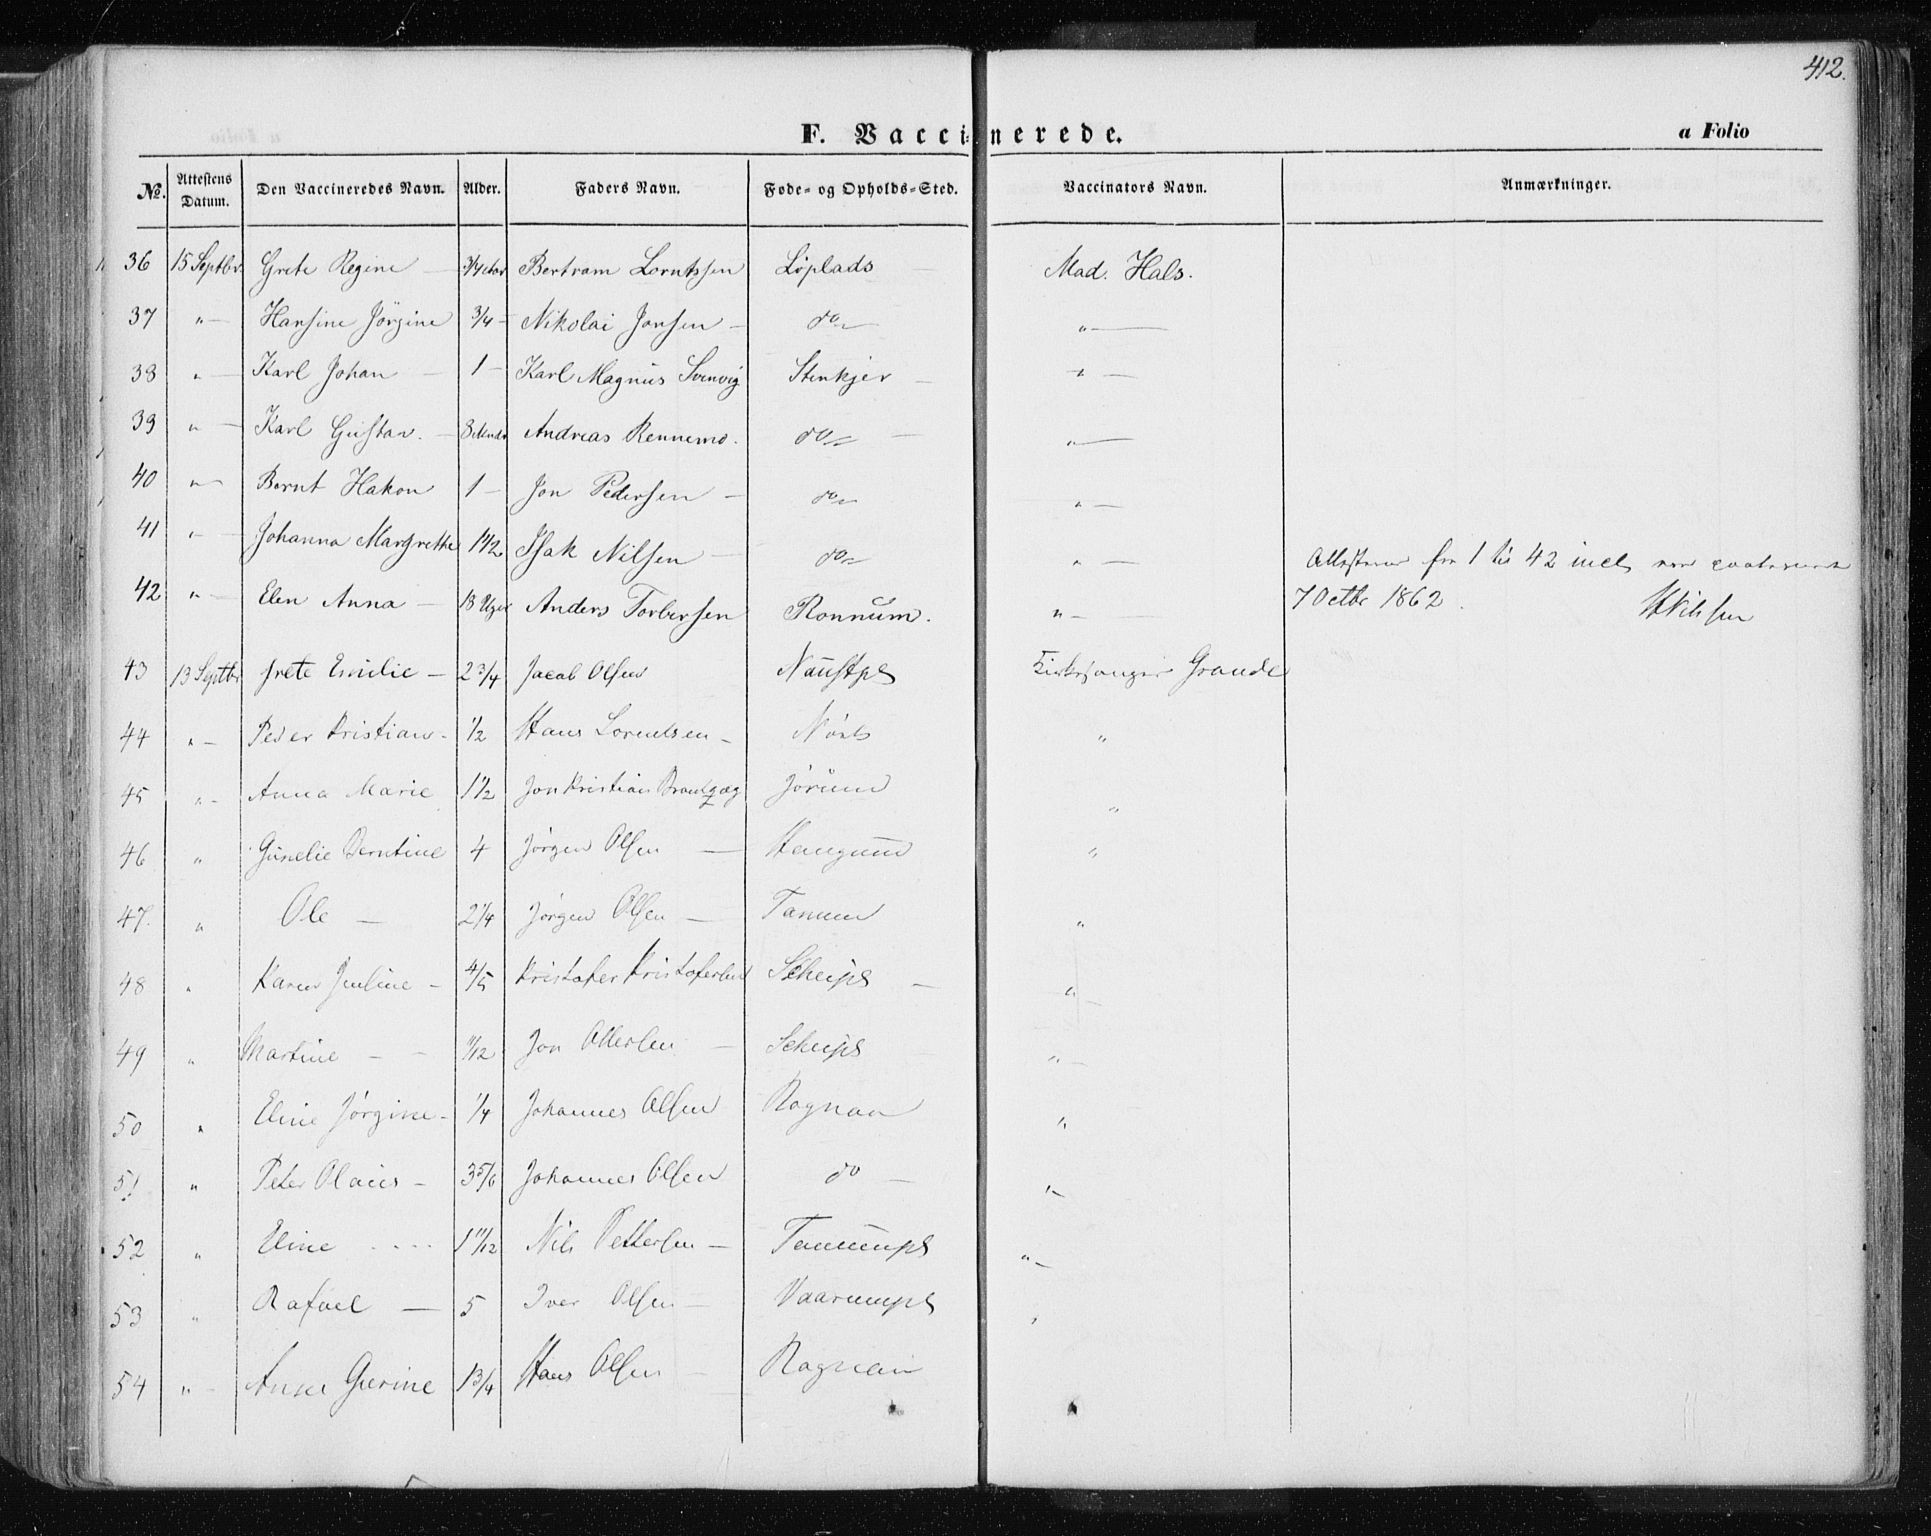 412.
F. Vaccinerede.
a Folio
No. Attestens Datum. Den Vaccineredes Navn. Alder. Faders Navn. Føde- og Opholds-Sted. Vaccinators Navn. Anmærkninger.
36 15 Septbr. Grete Regine — 3/4 Aar Bertram Lorntssen Löplads Mad. Hals.
37 " — Hansine Jörgine 3/4 — Nikolai Jonsen — do " —
38 " — Karl Johan — 1 — Karl Magnus Svenvig Stenkjer — " —
39 " — Karl Gustav. — 8 Mndr Andreas Rennemo. do — " —
40 " — Bernt Hakon 1 — Jon Pedersen — do " —
41 " — Johanna Margrethe 1 1/2 Isak Nilsen — do " —
42 " — Elen Anna — 18 Uger Anders Torbersen Ronnum. " — Attesterne fra 1 til 42 incl
7 Octbr 1862.
43 13 Septbr Grete Emilie — 2 3/4 Jacob Olsen Naustpl Kirkesanger Grande
44 " — Peder Kristian — 1/2 Hans Lorentsen — "
45 " — Anna Marie 1 1/2 Jon Kristian Jörum "
46 " Gunelie Berntine 4 Jörgen Olsen — Haugum "
47. " Ole — 2 1/4 Jörgen Olsen — Tanum "
48 " Karen Pauline — 4/5 Kristofer Kristofersen — " —
49 " Martine — — 11/12 Jon Ottersen — " —
50 " Eline Jörgine — 1/4 Johannes Olsen Rognan "
51 " Peter Olaus — 3 5/6 Johannes Olsen do — " —
52 " Eline 1 11/12 Nils Pettersen — Tanumpl " —
53 " Rafael — 5 Iver Olsen — Vaarumpl "
54 " — Anne Gurine 1 3/4 Hans Olsen — Rognan